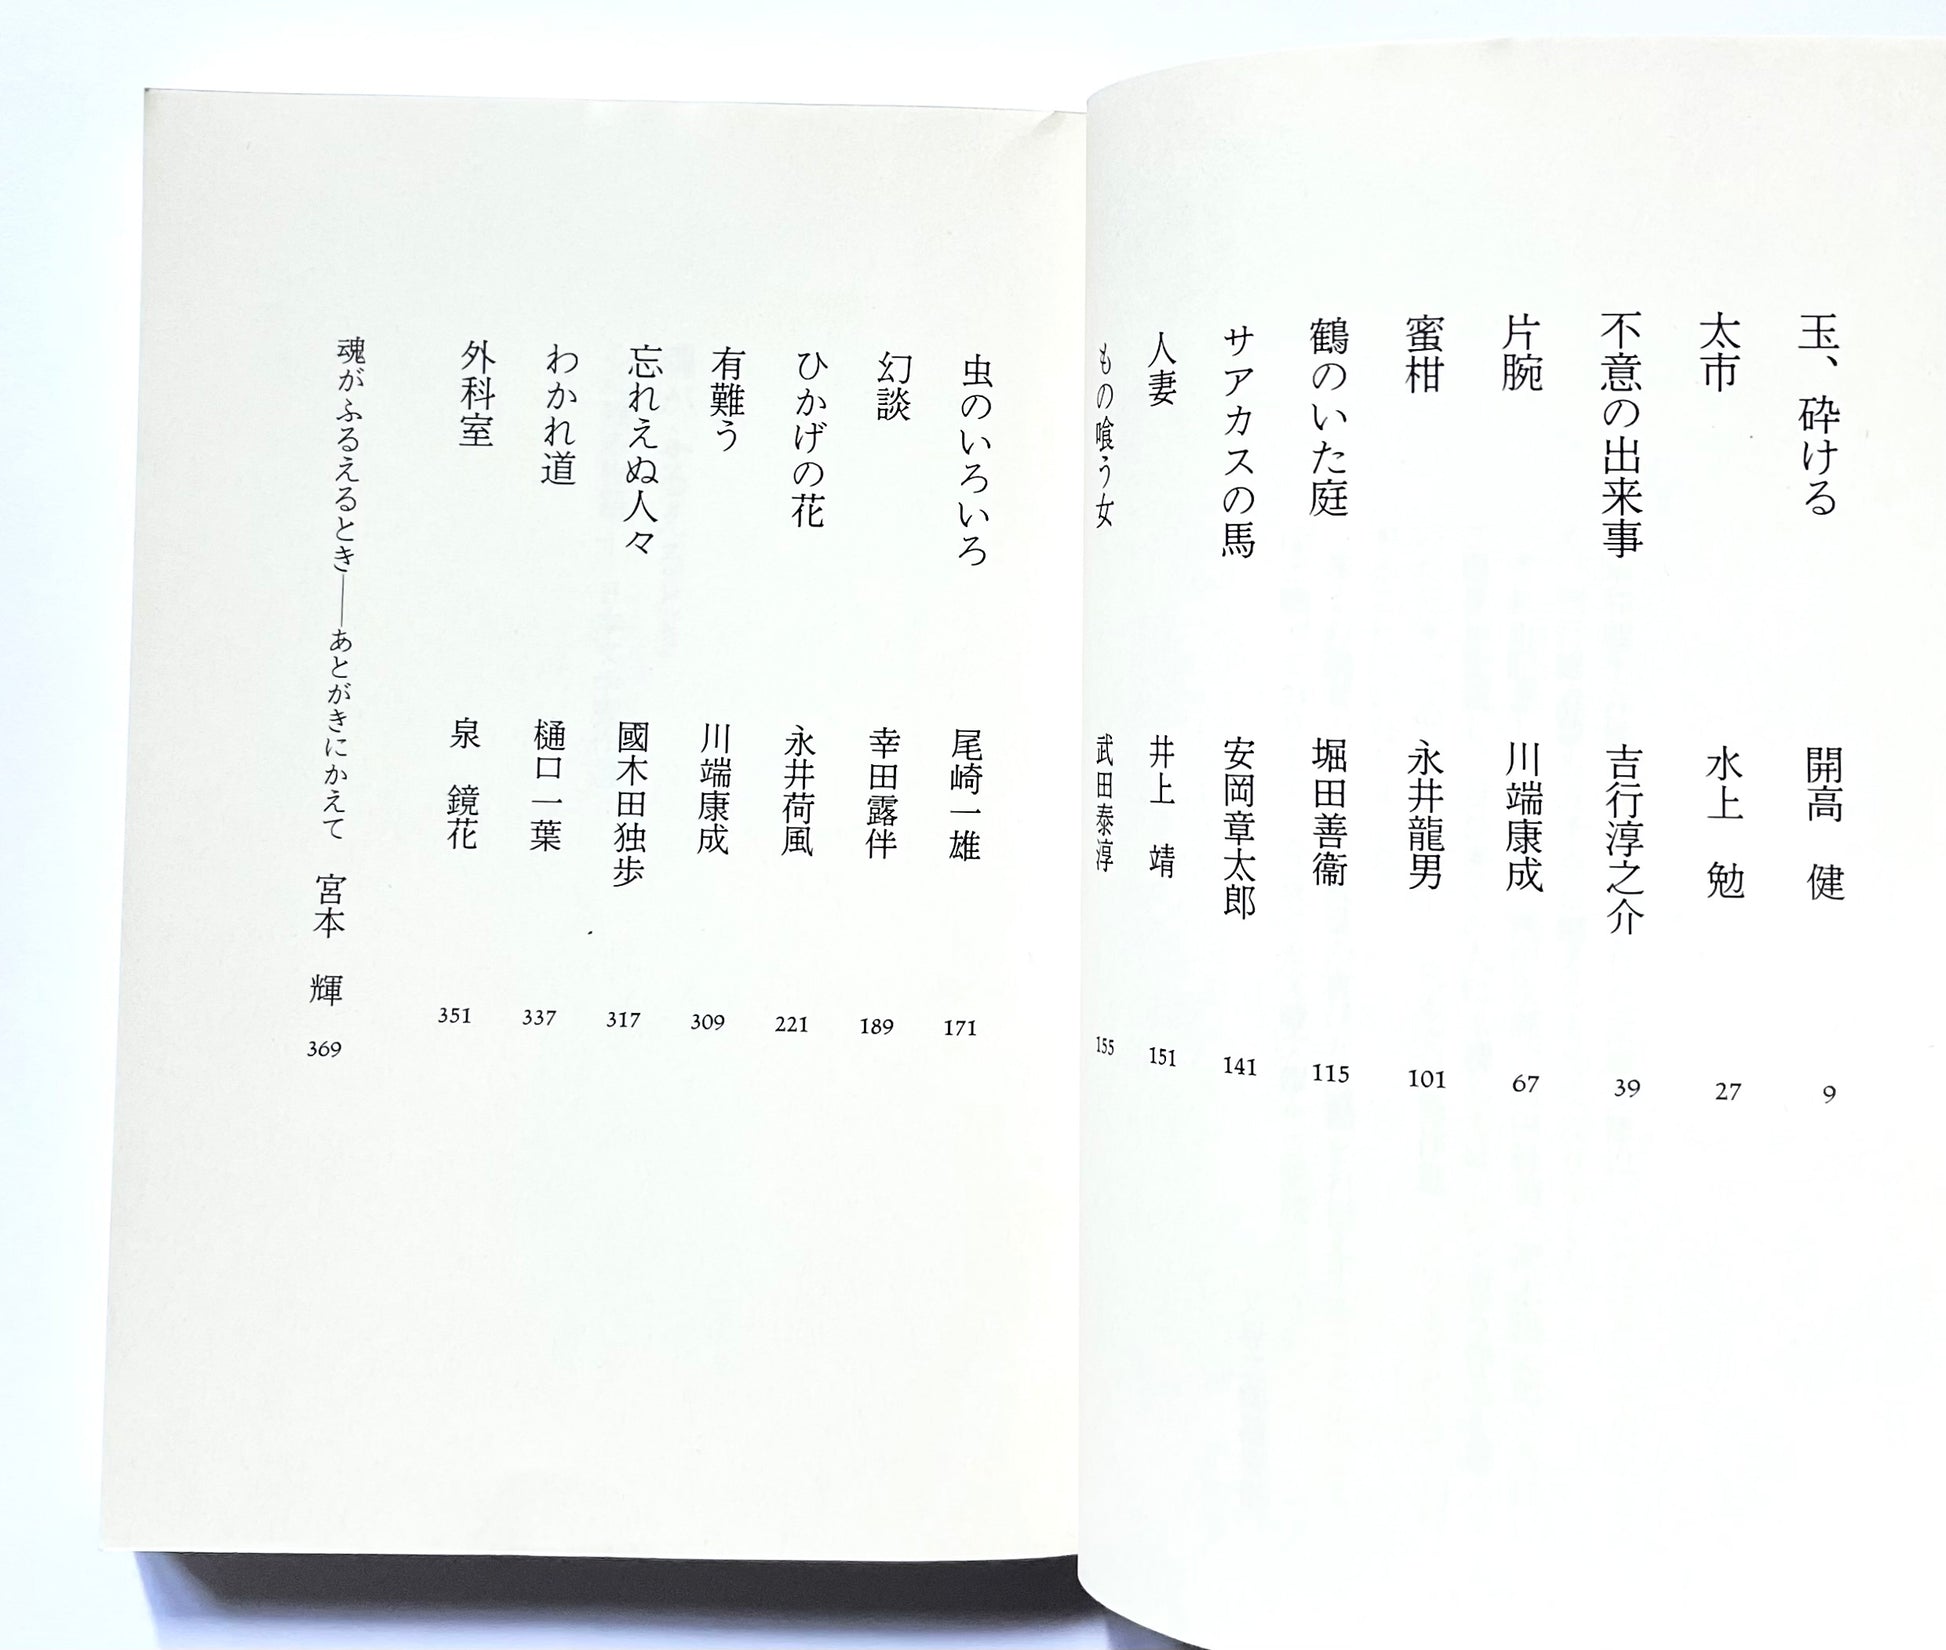 玉、砕ける　開高　健　9
太市　水上　勉　27
不意の出来事　吉行淳之介　39
片腕　川端康成　67
蜜柑　永井龍男　101
鶴のいた庭　堀田善衞　115
サアカスの馬　安岡章太郎　141
人妻　井上　靖　151
もの喰う女　武田泰淳　155
虫のいろいろ　尾崎一雄　171
幻談　幸田露伴　189
ひかげの花　永井荷風　221
有難う　川端康成　309
忘れえぬ人々　國木田独歩　317
わかれ道　樋口一葉　337
外科室　泉　鏡花　351
魂がふるえるとき——あとがきにかえて　宮本　輝　369